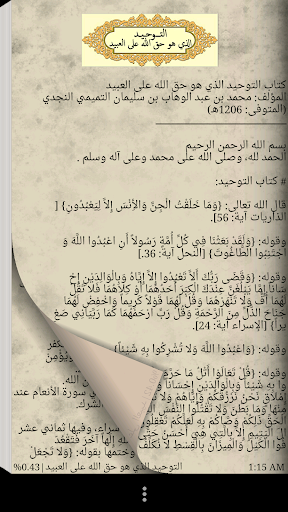 التوحيد
الذي هو حق الله على العبيد
كتاب التوحيد الذي هو حق الله على العبيد
المؤلف: محمد بن عبد الوهاب بن سليمان التميمي النجدي
(المتوفى: 1206هـ)
بسم الله الرحمن الرحيم
الحمد لله، وصلى الله على محمد وعلى آله وسلم .
# كتاب التوحيد:
قال الله تعالى: {وَمَا خَلَقْتُ الْجِنَّ وَالأِنْسَ إِلاَّ لِيَعْبُدُونِ} [
الذاريات آية: 56].
وقوله: {وَلَقَدْ بَعَثْنَا فِي كُلِّ أُمَّةٍ رَسُولاً أَنِ اعْبُدُوا اللَّهَ وَ
اجْتَنِبُوا الطَّاغُوتَ} [النحل آية: 36.]
وقوله: {وَقَضَى رَبُّكَ أَلاَّ تَعْبُدُوا إِلاَّ إِيَّاهُ وَبِالْوَالِدَيْنِ إِحْ
سَاناً إِمَّا يَبْلُغَنَّ عِنْدَكَ الْكِبَرَ أَحَدُهُمَا أَوْ كِلاهُمَا فَلا تَقُلْ
لَهُمَا أُفٍّ وَلا تَنْهَرْهُمَا وَقُلْ لَهُمَا قَوْلاً كَرِيماً وَاخْفِضْ لَهُمَا
جَنَاحَ الذُّلِّ مِنَ الرَّحْمَةِ وَقُلْ رَبِّ ارْحَمْهُمَا كَمَا رَبَّيَانِي صَغِ
يراً} [الإسراء آية: 24].
وقوله: {وَاعْبُدُوا اللَّهَ وَلا تُشْرِكُوا بِهِ شَيْئاً}
وقوله: {قُلْ تَعَالَوْا أَتْلُ مَا حَرَّمَ
وا بِهِ شَيْئاً وَبِالْوَالِدَيْنِ إِحْسَاناً
إِمْلاقٍ نَحْنُ نَرْزُقُكُمْ وَإِيَّاهُمْ
مِنْهَا وَمَا بَطَنَ وَلا تَقْتُلُوا النَّفْسَ
الْحَقِّ ذَلِكُمْ وَصَّاكُمْ بِهِ لَعَلَّكُمْ تَعْقِلُونَ
الَ الْيَتِيمِ إِلاَّ بِالَّتِي هِيَ أَحْسَنُ
فُوا الْكَيْلَ وَالْمِيزَانَ بِالْقِسْطِ لا نُكَلِّفُ
التوحيد الذي هو حق الله على العبيد |%0.43
1:15 AM